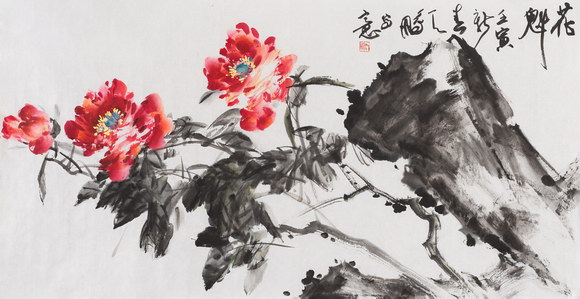 花魁壬寅新春鹏写意